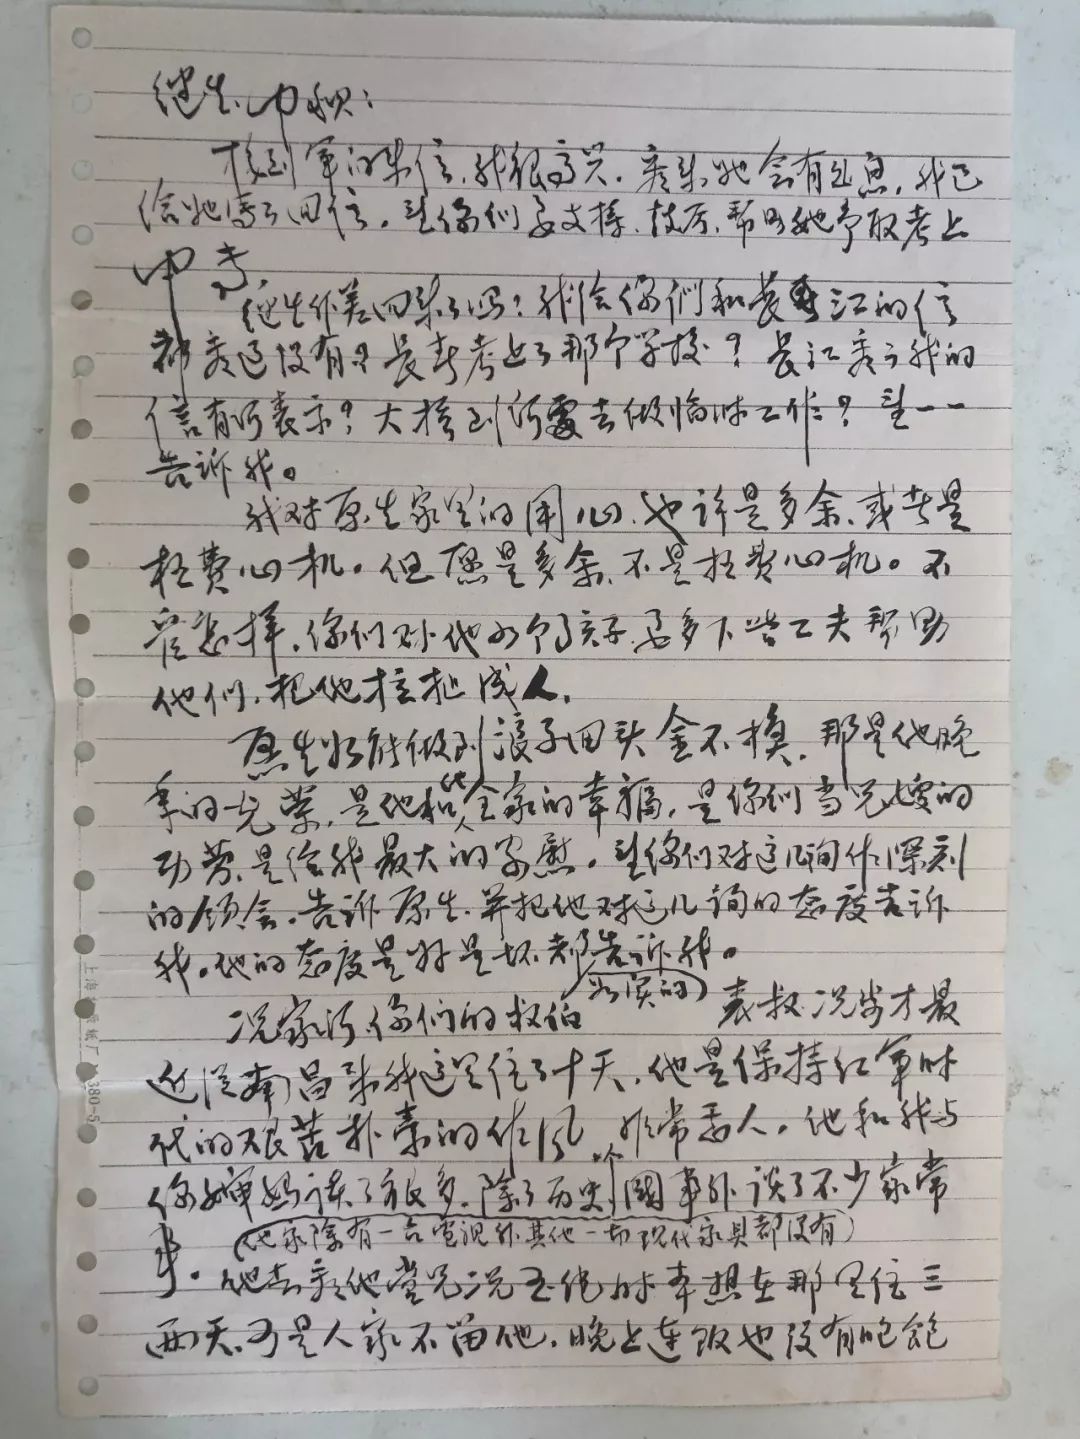 继生、巾帼:
接到军的来信,我很高兴,看来她会有出息,我已
给她写了回信。望你们要支持、扶厉、帮助她争取考上
中专。
继生作差回来了吗?我给你们和长江的信
都看过没有?长春考上了那个学校?长江看了我的
信有何表示?大桥到何处去做临时工作?望一一
告诉我。
我对原生家里的用心,也许是多余,或者是
枉费心机。但愿是多余,不是枉费心机。不
管怎样,你们对他的个孩子,要多下些工夫帮助
他们,把他扶挺成人。
原生如能做到浪子回头金不换,那是他晚
年的光荣,是他和他全家人的幸福,是你们当兄嫂的
功劳,是给我最大的安慰。望你们对这几询作深刻
的领会,告诉原生,并把他对这几询的态度告诉
我。他的态度是好是坏都(如实的)告诉我。
况家 你们的叔伯 表叔况 才最
近从南昌来我这里住了十天,他是保持红军时
代的艰苦朴素的作风,非常 人。他和我与
你婶妈谈了很多,除了历史、个国事外谈了不少家常
事。(他家除有一台电视外其他一切现代家具都没有)
他去看他堂兄况 时本想在那里住三
两天,可是人家不留他,晚上连饭也没有吃饱
上海 械厂 380-5